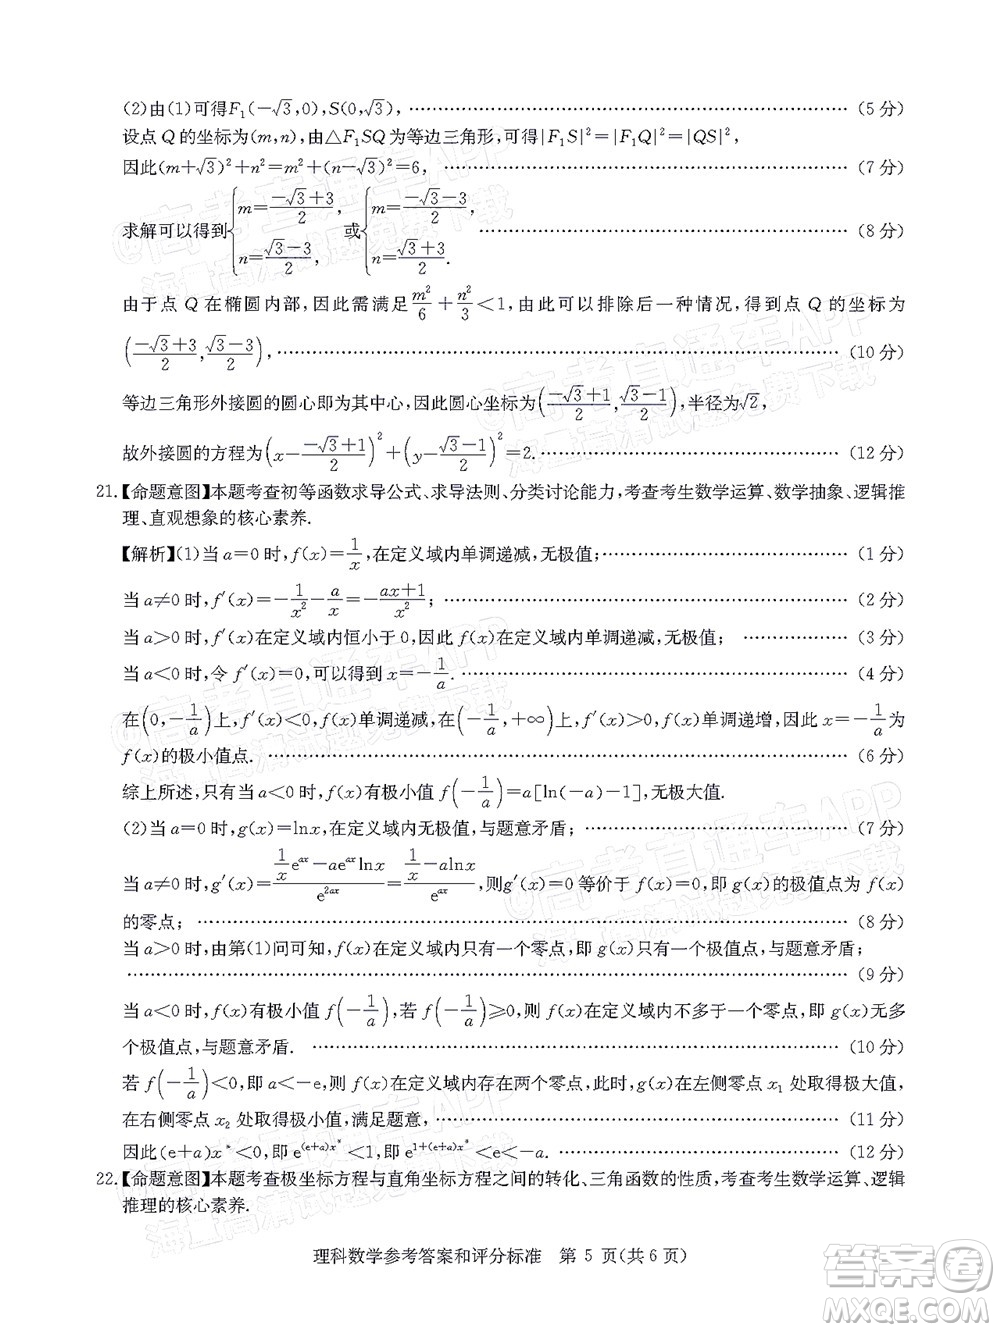 (2)由(1)可得F₁(-√3,0),S(0,√3),……(5分)
设点 Q 的坐标为(m,n),由△F₁SQ为等边三角形,可得|F₁S|²=|F₁Q|²=|QS|²,
因此(m+√3)²+n²=m²+(n-√3)²=6,……(7分)
求解可以得到{m=(-√3+3)/2, n=(√3-3)/2, 或{m=(-√3-3)/2, n=(√3+3)/2.……(8分)
由于点 Q 在椭圆内部,因此需满足m²/6+n²/3<1,由此可以排除后一种情况,得到点 Q 的坐标为
((-√3+3)/2,(√3-3)/2),……(10分)
等边三角形外接圆的圆心即为其中心,因此圆心坐标为((-√3+1)/2,(√3-1)/2),半径为√2,
故外接圆的方程为(x-(-√3+1)/2)²+(y-(√3-1)/2)²=2.……(12分)
21.【命题意图】本题考查初等函数求导公式、求导法则、分类讨论能力,考查考生数学运算、数学抽象、逻辑推
理、直观想象的核心素养.
【解析】(1)当 a=0 时,f(x)=1/x,在定义域内单调递减,无极值;……(1分)
当 a≠0 时,f′(x)=-1/x²-a/x=-(ax+1)/x²;……(2分)
当 a>0 时,f′(x)在定义域内恒小于 0,因此 f(x)在定义域内单调递减,无极值;……(3分)
当 a<0 时,令 f′(x)=0,可以得到 x=-1/a.……(4分)
在(0,-1/a)上,f′(x)<0,f(x)单调递减,在(-1/a,+∞)上,f′(x)>0,f(x)单调递增,因此 x=-1/a为
f(x)的极小值点.……(6分)
综上所述,只有当 a<0 时,f(x)有极小值 f(-1/a)=a[ln(-a)-1],无极大值.
(2)当 a=0 时,g(x)=lnx,在定义域内无极值,与题意矛盾;……(7分)
当 a≠0 时,g′(x)=(1/x e^{ax}-ae^{ax}lnx)/e^{2ax}=(1/x-alnx)/e^{ax},则g′(x)=0 等价于 f(x)=0,即 g(x)的极值点为 f(x)
的零点;……(8分)
当 a>0 时,由第(1)问可知,f(x)在定义域内只有一个零点,即 g(x)只有一个极值点,与题意矛盾;
……(9分)
当 a<0 时,f(x)有极小值 f(-1/a),若 f(-1/a)≥0,则 f(x)在定义域内不多于一个零点,即 g(x)无多
个极值点,与题意矛盾.……(10分)
若 f(-1/a)<0,即 a<-e,则 f(x)在定义域内存在两个零点,此时,g(x)在左侧零点 x₁ 处取得极大值,
在右侧零点 x₂ 处取得极小值,满足题意,……(11分)
因此(e+a)x*<0,即 e^{(e+a)x*}<1,即 e^{1+(e+a)x*}<e<-a.……(12分)
22.【命题意图】本题考查极坐标方程与直角坐标方程之间的转化、三角函数的性质,考查考生数学运算、逻辑
推理的核心素养.
理科数学参考答案和评分标准 第 5 页(共 6 页)
答案圈
MXQE.COM